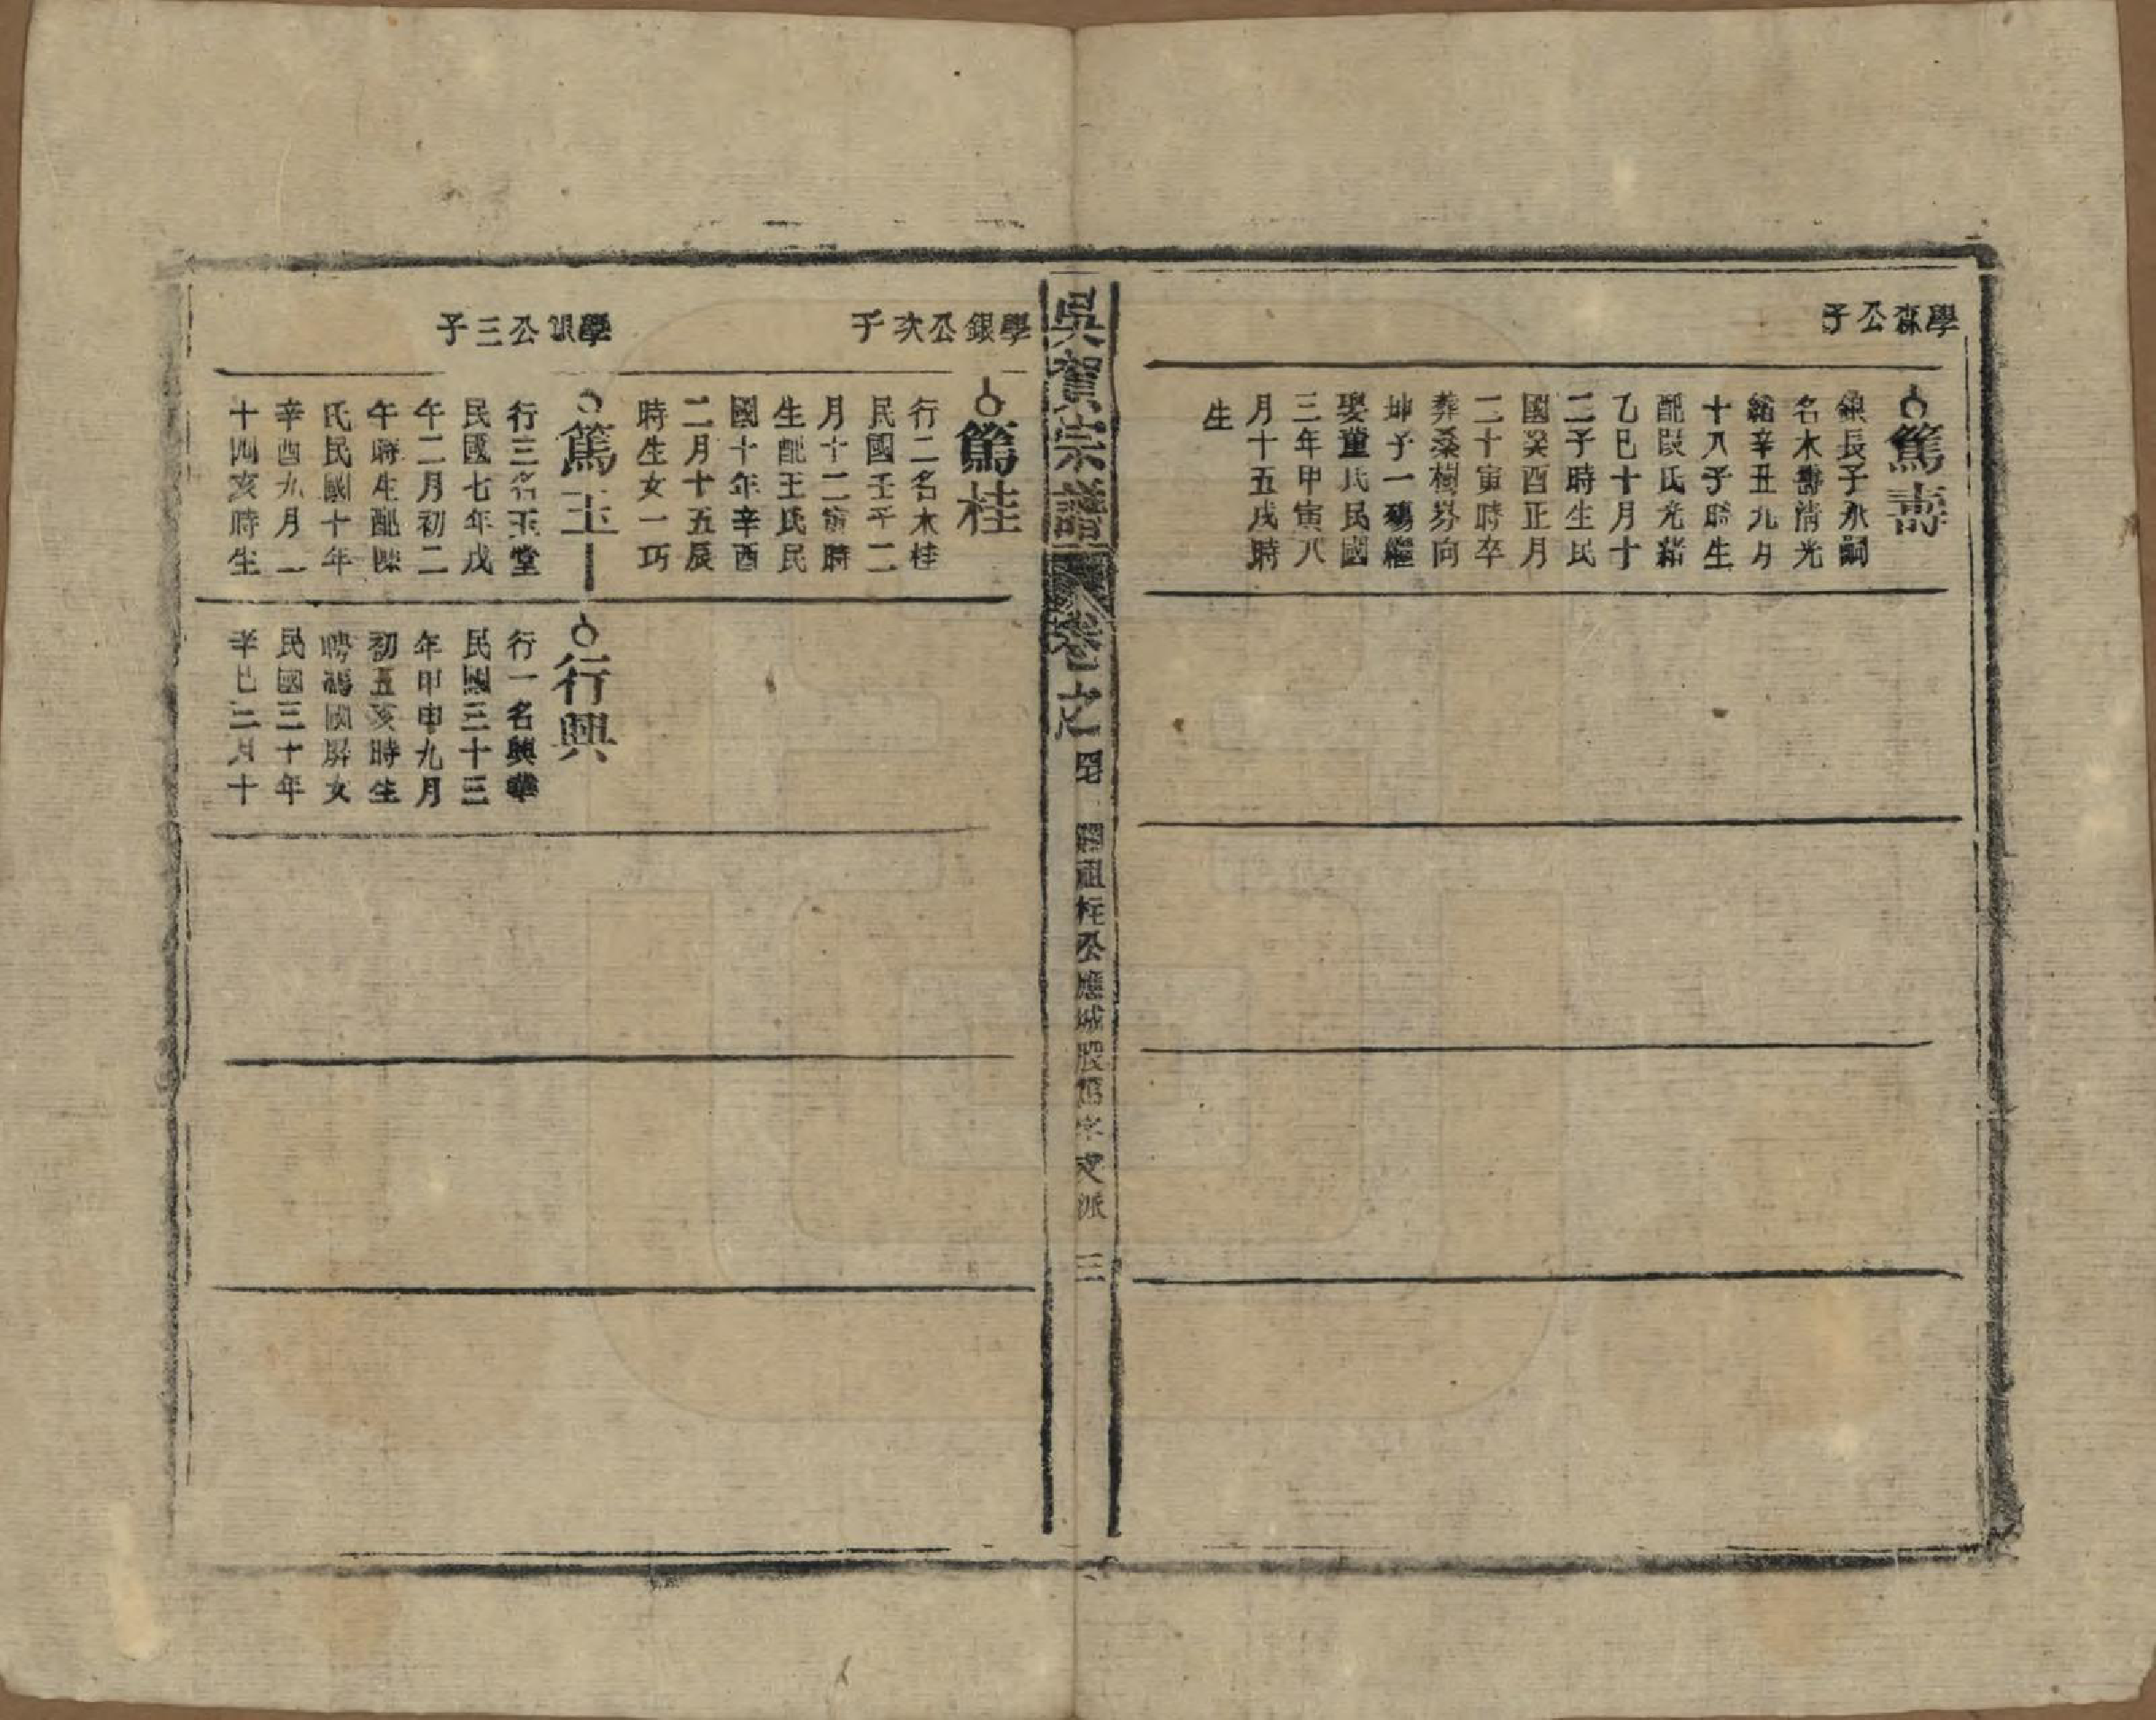 學森公子
篤壽
銀長子承嗣
名木壽清光
緒辛丑九月
十八子時生
配段氏光緒
乙巳十月十
二子時生民
國癸酉正月
二十寅時卒
葬桑樹界向
坤子一殤繼
娶董氏民國
三年甲寅八
月十五戌時
生
吳賀宗譜
卷之
祖柱公應城股篤字支派
三
學銀公次子
篤桂
行二名木桂
民國壬子二
月十二寅時
生配王氏民
國十年辛酉
二月十五辰
時生女一巧
學銀公三子
篤玉
行三名玉堂
民國七年戊
午二月初二
午時生配陳
氏民國十年
辛酉九月二
十四亥時生
行興
行一名興華
民國三十三
年甲申九月
初五亥時生
聘馮國屏女
民國三十年
辛巳三月十